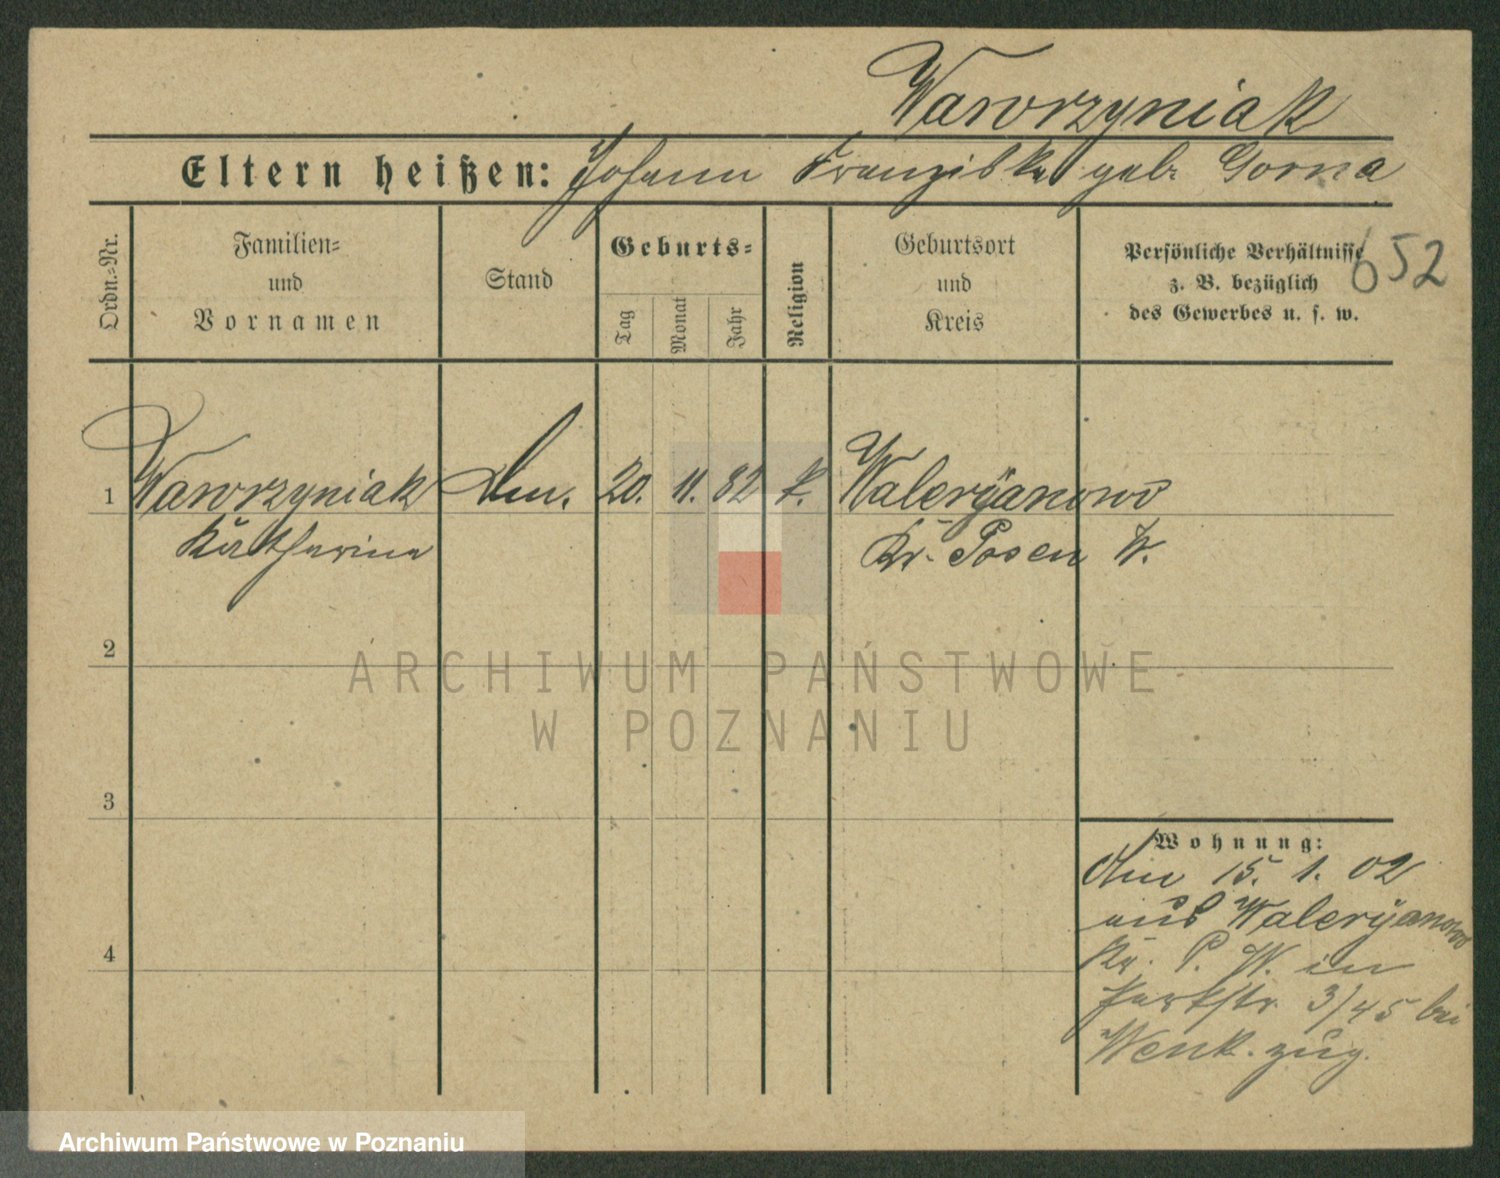 Wawrzyniak
Eltern heißen: Johann Franziska geb. Gorna
652
Ordn.=Nr.
Familien=
und
Vornamen
Stand
Geburts=
Tag
Monat
Jahr
Religion
Geburtsort
und
Kreis
Persönliche Verhältnisse
z. B. bezüglich
des Gewerbes u. s. w.
1 Wawrzyniak 20. 11. 82 k. Waleryanowo
Katharina Kr. Posen W.
2
ARCHIWUM PAŃSTWOWE
W POZNANIU
3
Wohnung:
15. 1. 02
aus Waleryanowo
4
Kr. P. W. in
Parkstr 3/45 bei
Wenk. zug.
Archiwum Państwowe w Poznaniu